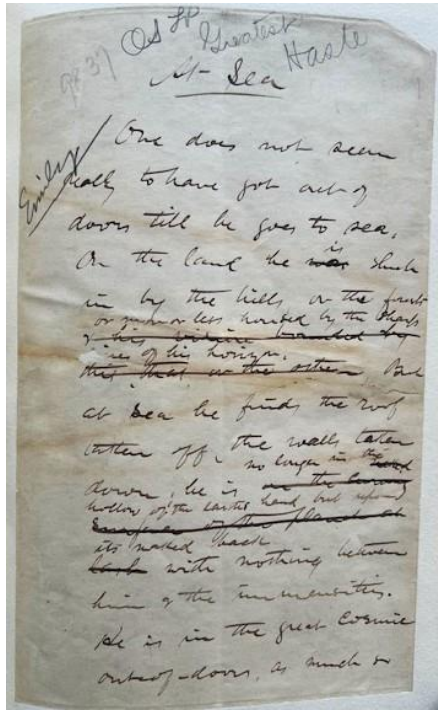 OS LP Greatest Haste
gp 37
At Sea
Emily
One does not seem
really to have got out of
doors till he goes to sea.
On the land he was is shut
in by the hills or the forests
or more or less housed by the sharp
& his vision bounded by
lines of his horizon.
this that or the other But
at sea he finds the roof
taken off, the walls taken
no longer in the
down, he is on the
hollow of the earth's hand but upon
surface of the planet at
its naked back
with nothing between
him & the immensities.
He is in the great Cosmic
out-of-doors, as much so